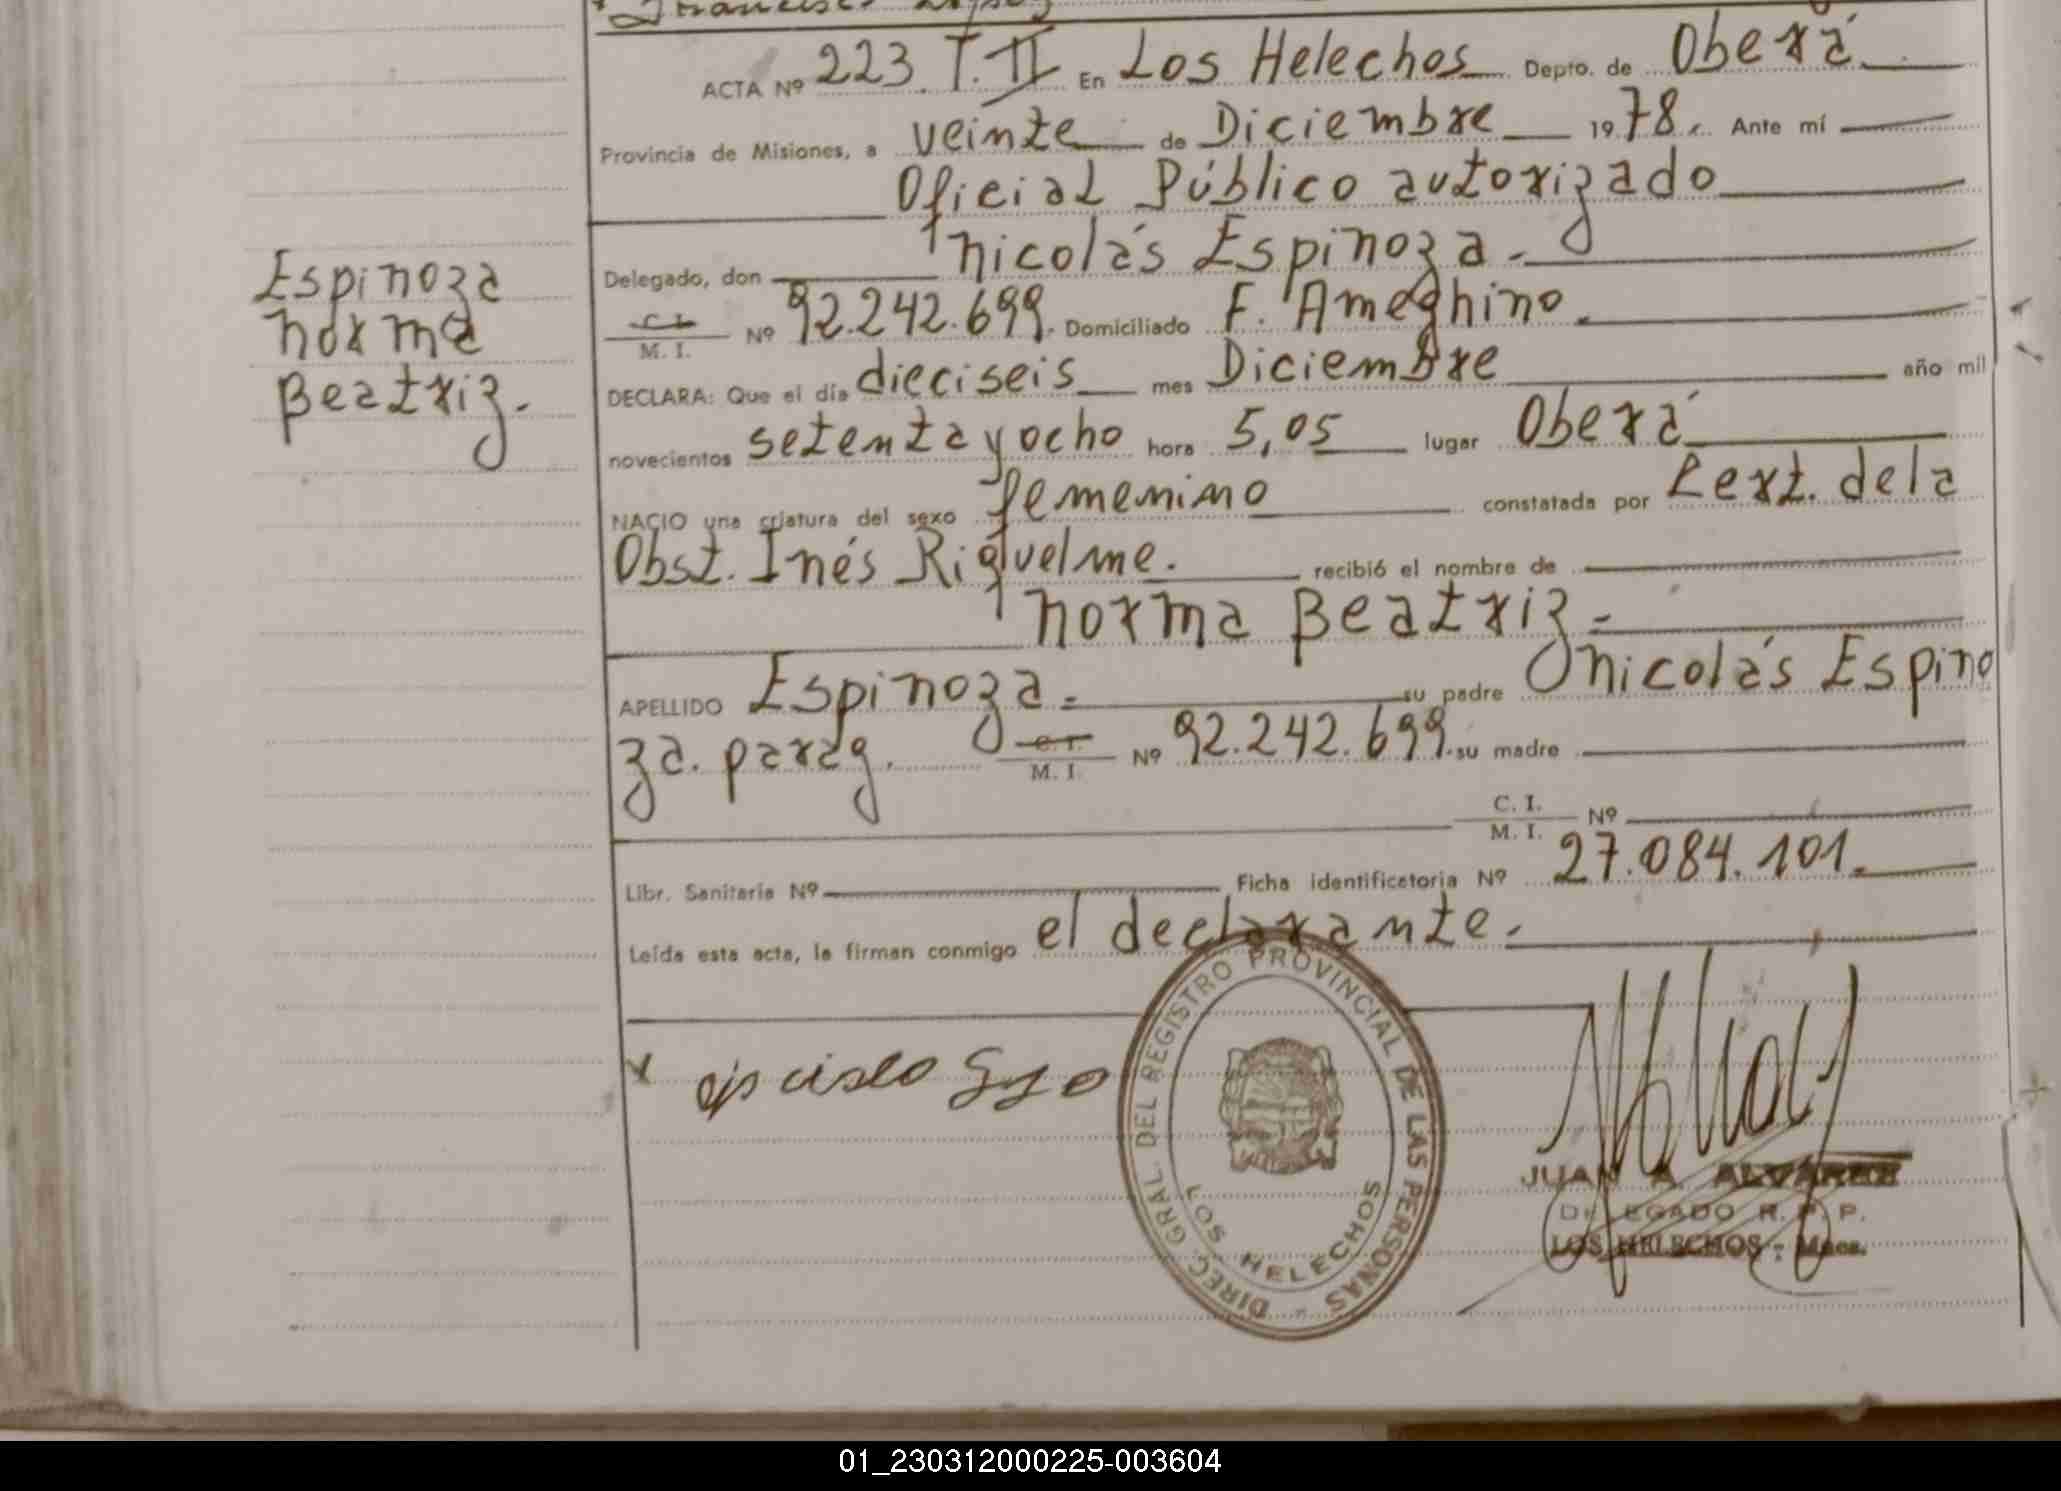 ACTA Nº 223. T. II En Los Helechos Depto. de Oberá
Provincia de Misiones, a veinte de Diciembre 1978. Ante mí
Oficial Público autorizado
Delegado, don Nicolás Espinoza.-
C. I.
M. I. Nº 92.242.699. Domiciliado F. Ameghino.
DECLARA: Que el día dieciseis mes Diciembre año mil
novecientos setenta y ocho hora 5,05 lugar Oberá
NACIO una criatura del sexo femenino constatada por Cert. de la
Obst. Inés Riquelme. recibió el nombre de
Norma Beatriz.-
APELLIDO Espinoza.- su padre Nicolás Espino
za. parag. C. I.
M. I. Nº 92.242.699. su madre
C. I.
M. I. Nº
Libr. Sanitaria Nº Ficha identificatoria Nº 27.084.101.
Leída esta acta, la firman conmigo el declarante.-
Espinoza
Norma
Beatriz.-
x
DIREC. GRAL. DEL REGISTRO PROVINCIAL DE LAS PERSONAS
LOS HELECHOS
JUAN A. ALVAREZ
DELEGADO R. P. P.
LOS HELECHOS - Mnes.
01_230312000225-003604